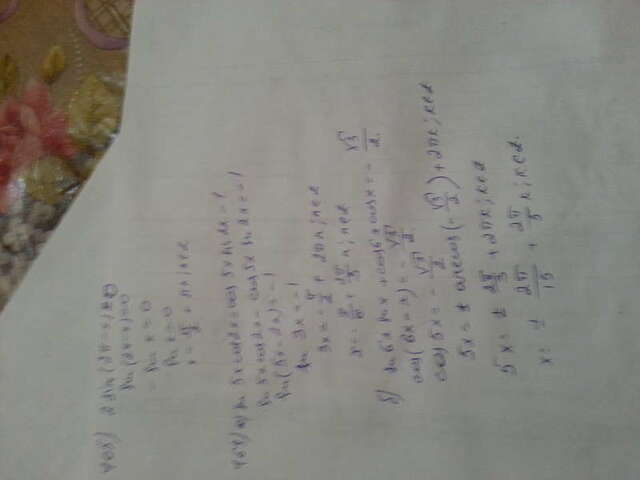 2 sin(2π-x)=0
sin(2π-x)=0
-sin x=0
sin x=0
x=π/2+πn; n∈Z
а) sin 5x cos 2x = cos 5x sin 2x - 1
sin 5x cos 2x - cos 5x sin 2x = -1
sin(5x-2x)=-1
sin 3x=-1
3x=-π/2+2πn; n∈Z
x=-π/6+2π/3 n; n∈Z
б) sin 6x sin x + cos 6x cos x = -√3/2
cos(6x-x)=-√3/2
cos 5x=-√3/2
5x=± arccos(-√3/2)+2πk; k∈Z
5x=± 2π/3+2πk; k∈Z
x=± 2π/15+2π/5 k; k∈Z.